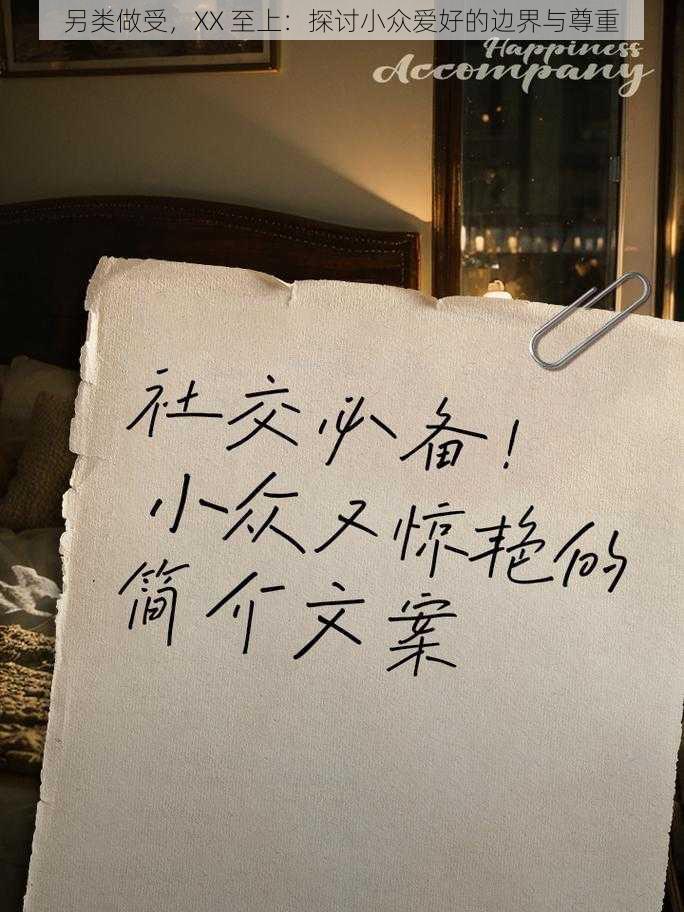 另类做受，XX 至上：探讨小众爱好的边界与尊重
Happiness
Accompany
社交必备！
小众又惊艳的
简介文案